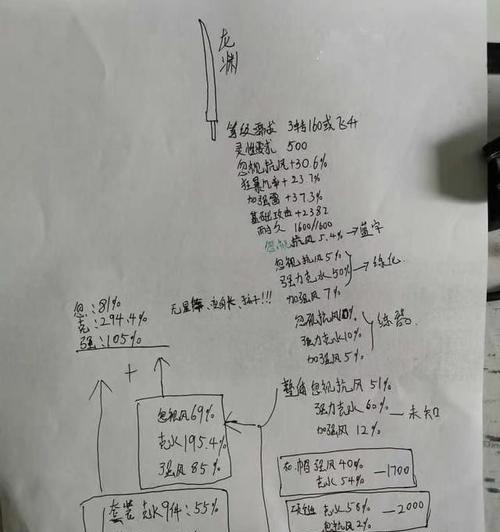 龙渊
等级要求 3转160或飞升
灵性要求 500
忽视抗风+30.6%
狂暴几率+23.7%
加强雷+37.3%
基础攻击+2382
耐久 1600/1600
忽视抗风5.4%→蓝字
忽视抗风5%
强力克水50%→炼化
加强风7%
忽视抗风10%
强力克水10%→炼器
加强风5%
忽:81%
克:294.4%
强:105%
+
整体忽视抗风51%
强力克水60%—未知
加强风12%
忽视风69%
克水195.4%
强风85%
帽 强风40%
克水54%—1700
套装克水9件:55%
克水58%—2000
忽抗风2%